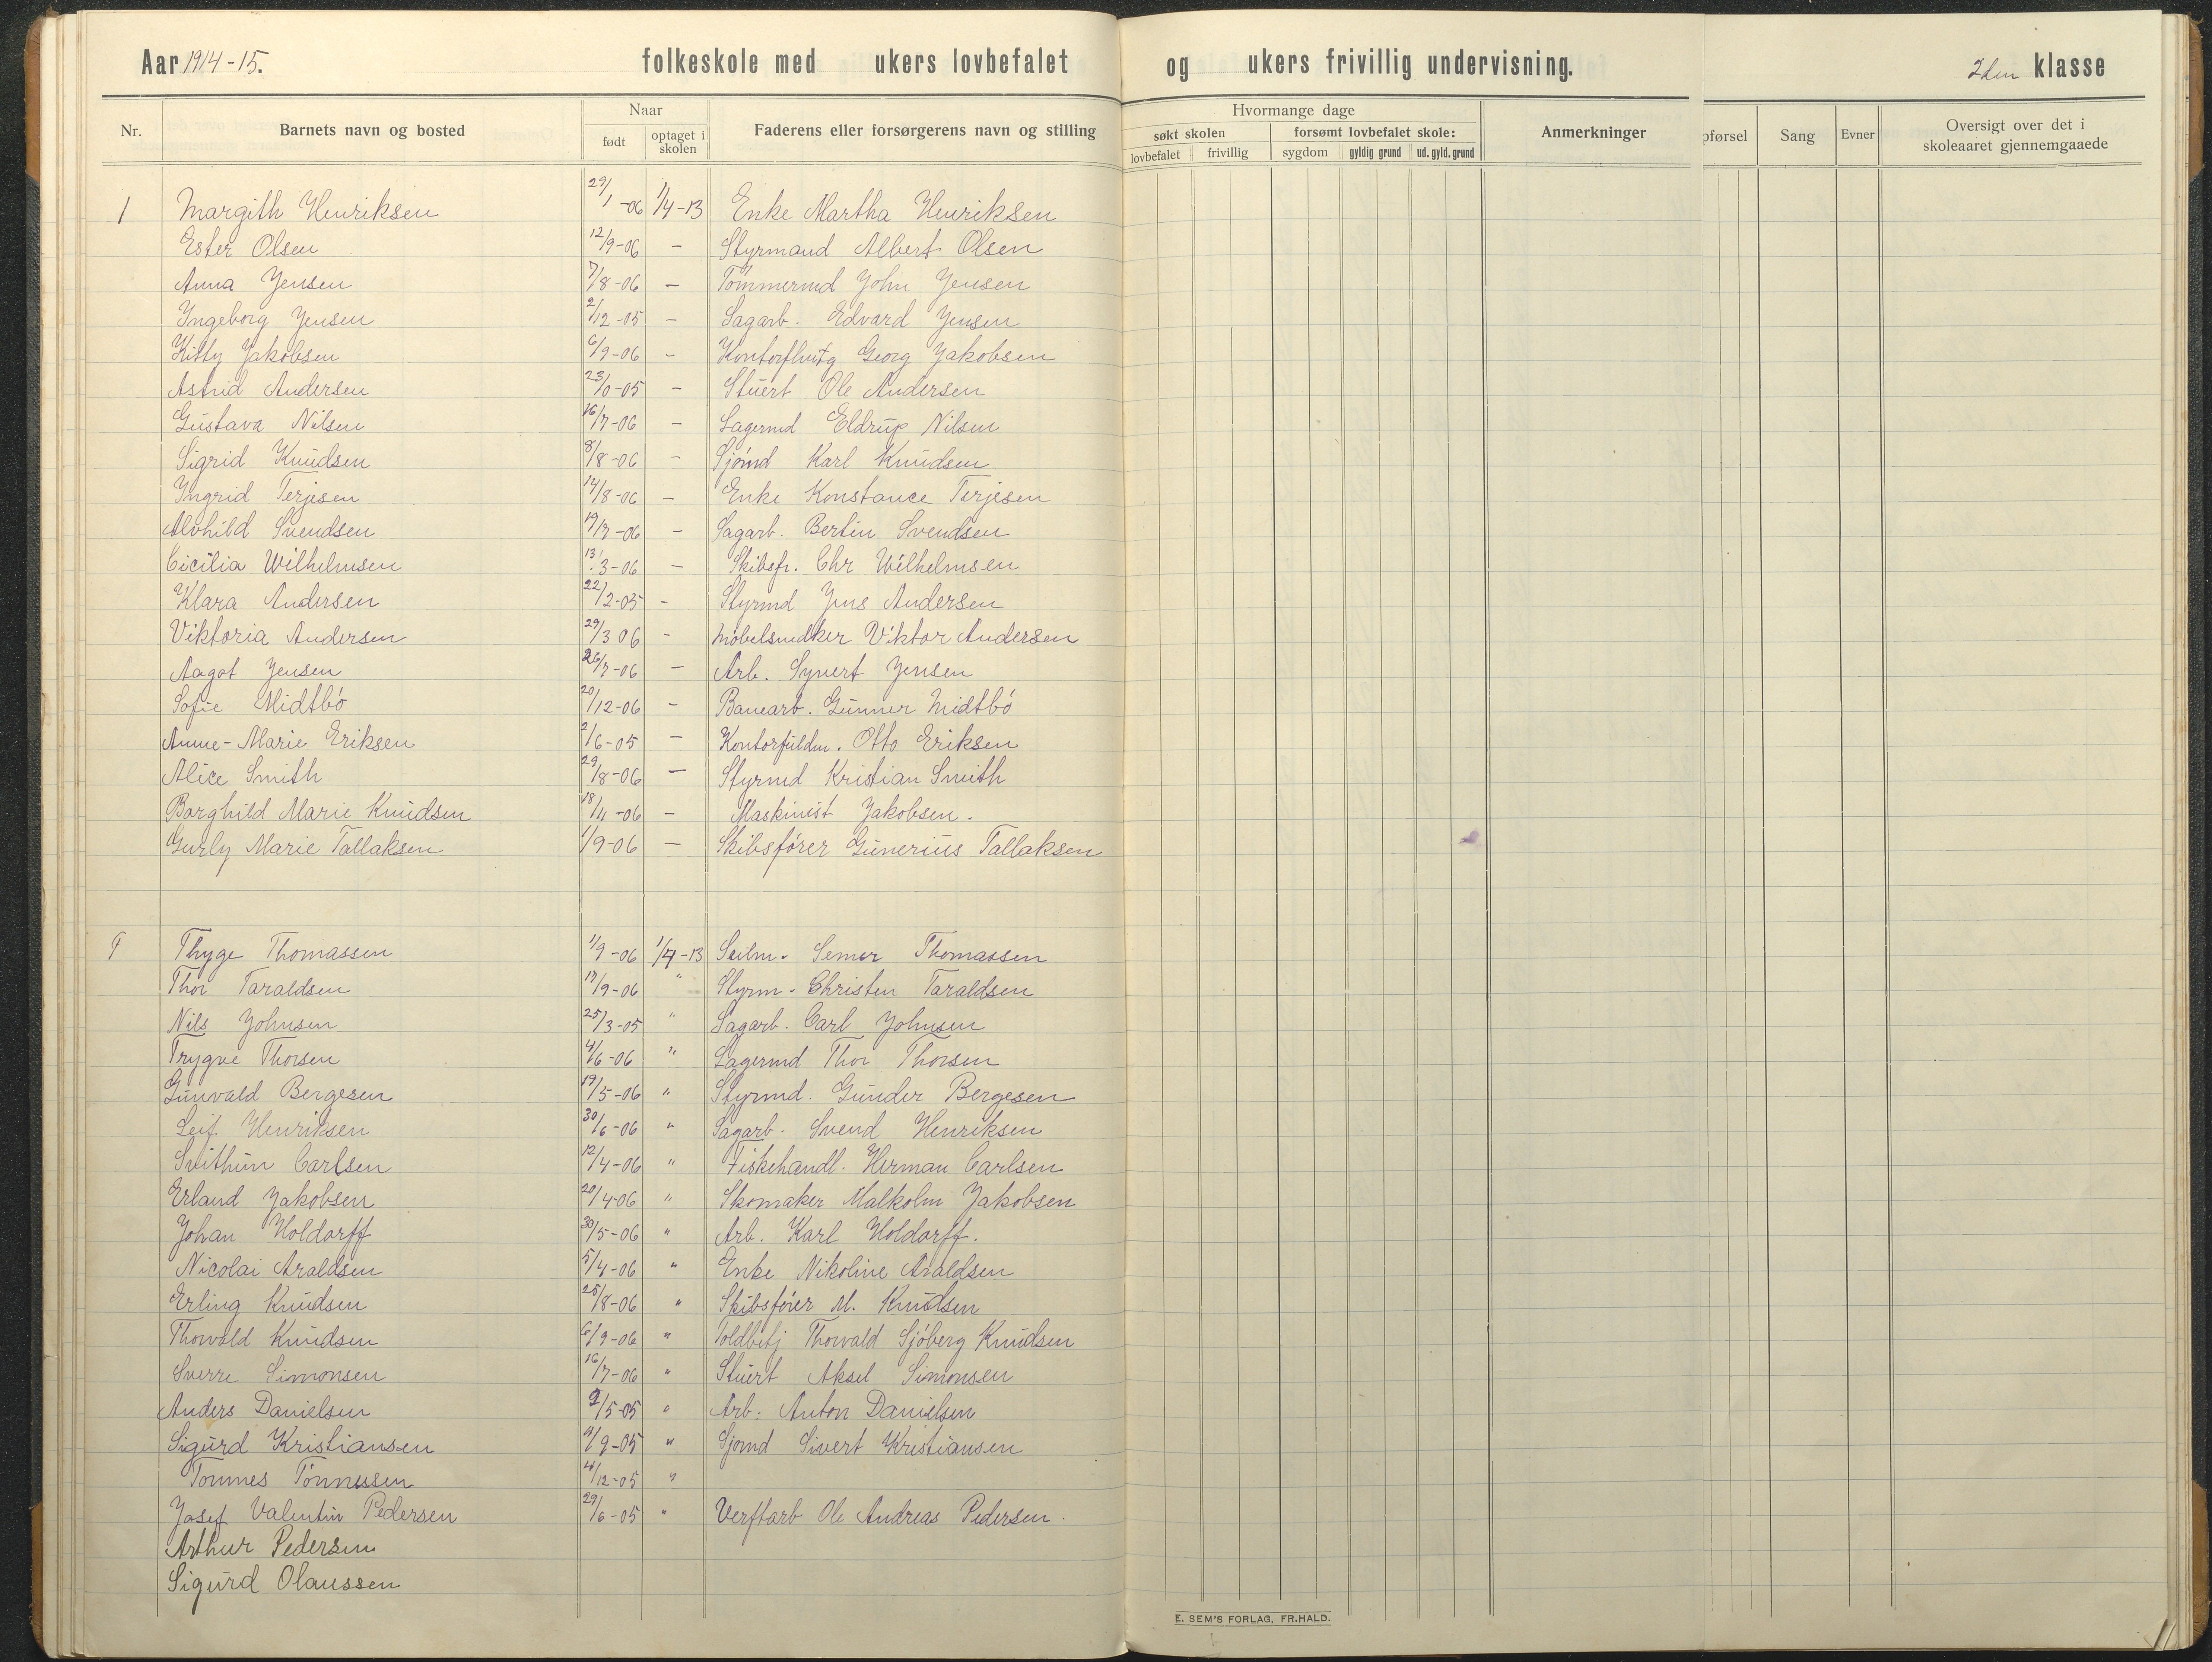 Aar 1914-15. folkeskole med ukers lovbefalet og ukers frivillig undervisning. 2den klasse
Nr. Barnets navn og bosted Naar født optaget i skolen Faderens eller forsørgerens navn og stilling Hvormange dage søkt skolen lovbefalet frivillig forsømt lovbefalet skole: sygdom gyldig grund ud. gyld. grund Anmerkninger pførsel Sang Evner Oversigt over det i skoleaaret gjennemgaaede
1 Margith Henriksen 29/1-06 1/4-13 Enke Martha Henriksen
Ester Olsen 12/9-06 — Styrmand Albert Olsen
Anna Jensen 7/8-06 — Tömmermd John Jensen
Ingeborg Jensen 2/12-05 — Sagarb. Edvard Jensen
Kitty Jakobsen 6/9-06 — Georg Jakobsen
Astrid Andersen 23/10-05 — Stuert Ole Andersen
Gustava Nilsen 16/7-06 — Lagermd Eldrup Nilsen
Sigrid Knudsen 8/8-06 — Sjömd Karl Knudsen
Ingrid Terjesen 14/8-06 — Enke Konstance Terjesen
Alvhild Svendsen 19/7-06 — Sagarb. Bertin Svendsen
Cicilia Wilhelmsen 13/3-06 — Skibsfr. Chr Wilhelmsen
Klara Andersen 22/2-05 — Styrmd Jens Andersen
Viktoria Andersen 29/3 06 — Möbelsnedker Viktor Andersen
Aagot Jensen 26/7-06 — Arb. Syvert Jensen
Sofie Midtbö 20/12-06 — Banearb. Gunner Midtbö
Anne-Marie Eriksen 2/6-05 — Kontorfuldm. Otto Eriksen
Alice Smith 29/8-06 — Styrmd Kristian Smith
Borghild Marie Knudsen 18/4-06 — Maskinist Jakobsen.
Gurly Marie Tallaksen 1/9-06 — Skibsförer Gunerius Tallaksen
1 Thyge Thomassen 1/9-06 1/4-13 Seilm. Semer Thomassen
Thor Taraldsen 17/9-06 " Styrm. Christen Taraldsen
Nils Johnsen 25/3-05 " Sagarb. Carl Johnsen
Trygve Thorsen 4/6-06 " Lagermd Thor Thorsen
Gunvald Bergesen 19/5-06 " Styrmd. Gunder Bergesen
Leif Henriksen 30/6-06 " Sagarb. Svend Henriksen
Svithun Carlsen 12/4-06 " Fiskehandl. Herman Carlsen
Erland Jakobsen 20/4-06 " Skomaker Malkolm Jakobsen
Johan Holdorff 30/5-06 " Arb. Karl Holdorff.
Nicolai Araldsen 5/4-06 " Enke Nikoline Araldsen
Erling Knudsen 25/8-06 " Skibsförer M. Knudsen
Thorvald Knudsen 6/9-06 " Toldbetj Thorvald Sjöberg Knudsen
Sverre Simonsen 16/7-06 " Stuert Aksel Simonsen
Anders Danielsen 2/5-05 " Arb. Anton Danielsen
Sigurd Kristiansen 9/9-05 " Sjömd Sivert Kristiansen
Tönnes Tönnesen 4/12-05 "
Josef Valentin Pedersen 29/6-05 " Verftarb Ole Andreas Pedersen.
Arthur Pedersen
Sigurd Olaussen
E. SEM'S FORLAG, FR.HALD.
11